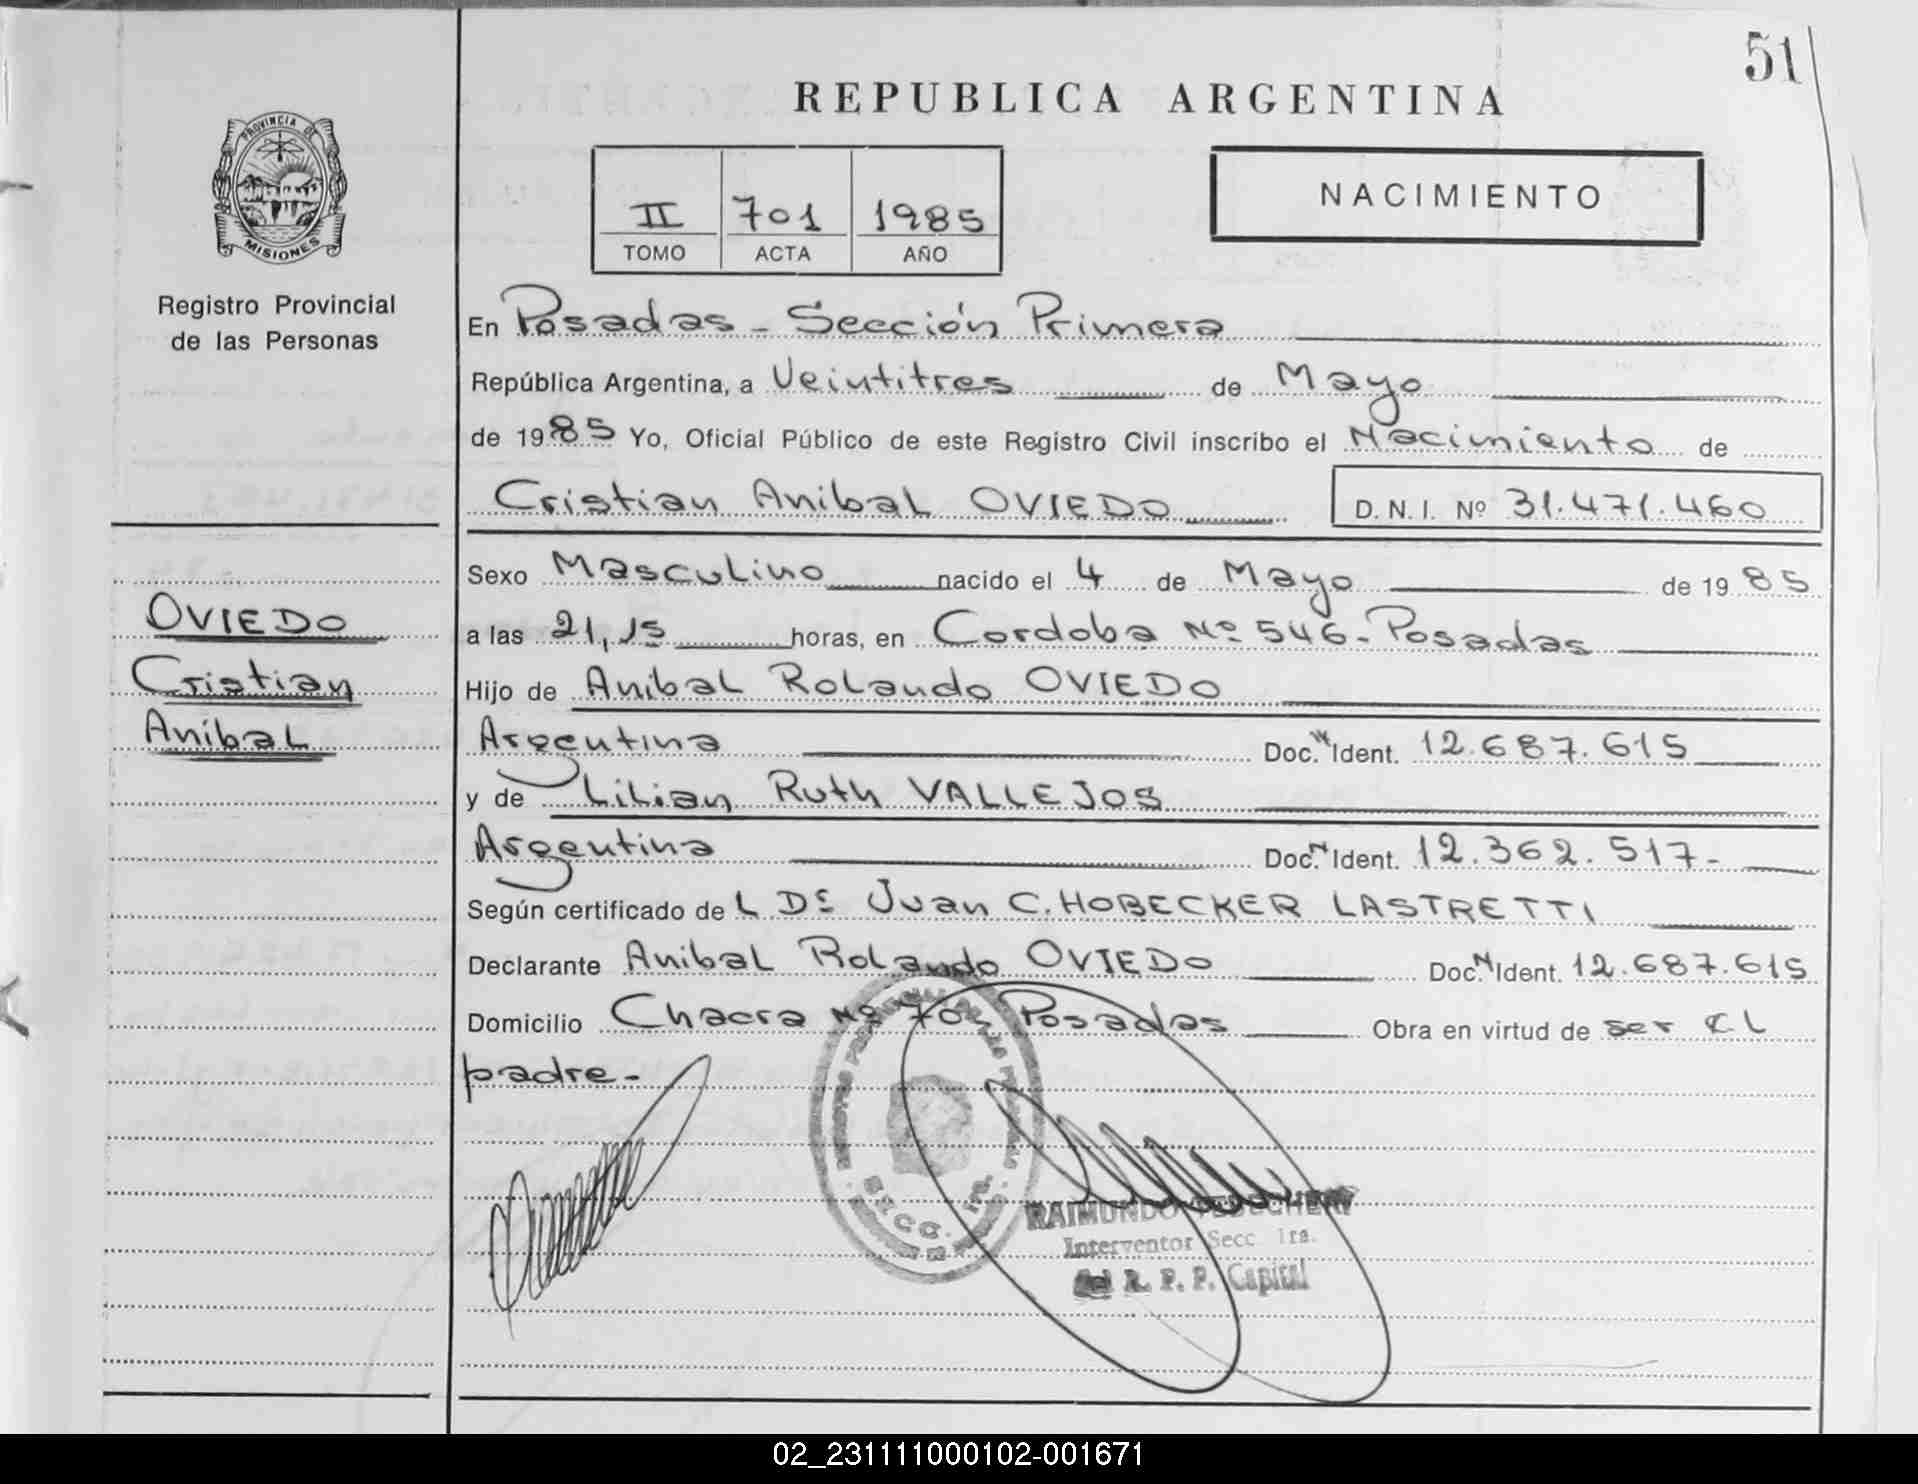 51
REPUBLICA ARGENTINA
PROVINCIA DE
MISIONES
Registro Provincial
de las Personas
II 701 1985
TOMO ACTA AÑO
NACIMIENTO
En Posadas - Sección Primera
República Argentina, a Veintitres de Mayo
de 1985 Yo, Oficial Público de este Registro Civil inscribo el Nacimiento de
Cristian Anibal OVIEDO D. N. I. Nº 31.471.460
Sexo Masculino nacido el 4 de Mayo de 1985
a las 21,15 horas, en Cordoba Nº 546 - Posadas
Hijo de Anibal Rolando OVIEDO
Argentina Doc. Ident. 12.687.615
y de Lilian Ruth VALLEJOS
Argentina Doc. Ident. 12.362.517-
Según certificado de L Dr Juan C. HOBECKER LASTRETTI
Declarante Anibal Rolando OVIEDO Doc. Ident. 12.687.615
Domicilio Chacra Nº Posadas Obra en virtud de ser el
padre-
OVIEDO
Cristian
Anibal
SECC. 1ra.
RAIMUNDO
Interventor Secc 1ra.
R. P. P. Capital
02_231111000102-001671